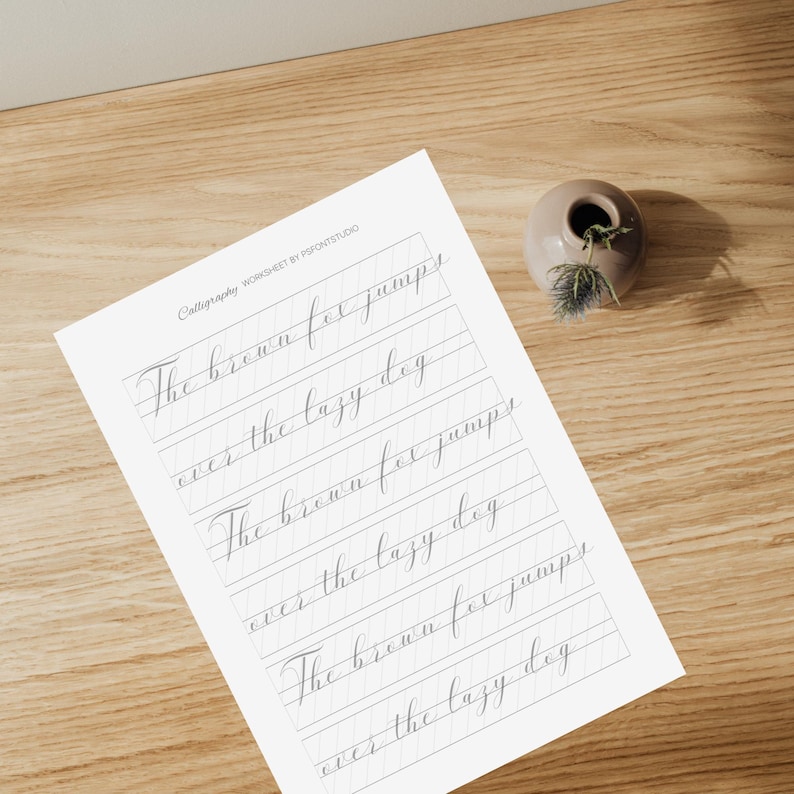 Calligraphy WORKSHEET BY PSFONTSTUDIO
The brown fox jumps
over the lazy dog
The brown fox jumps
over the lazy dog
The brown fox jumps
over the lazy dog